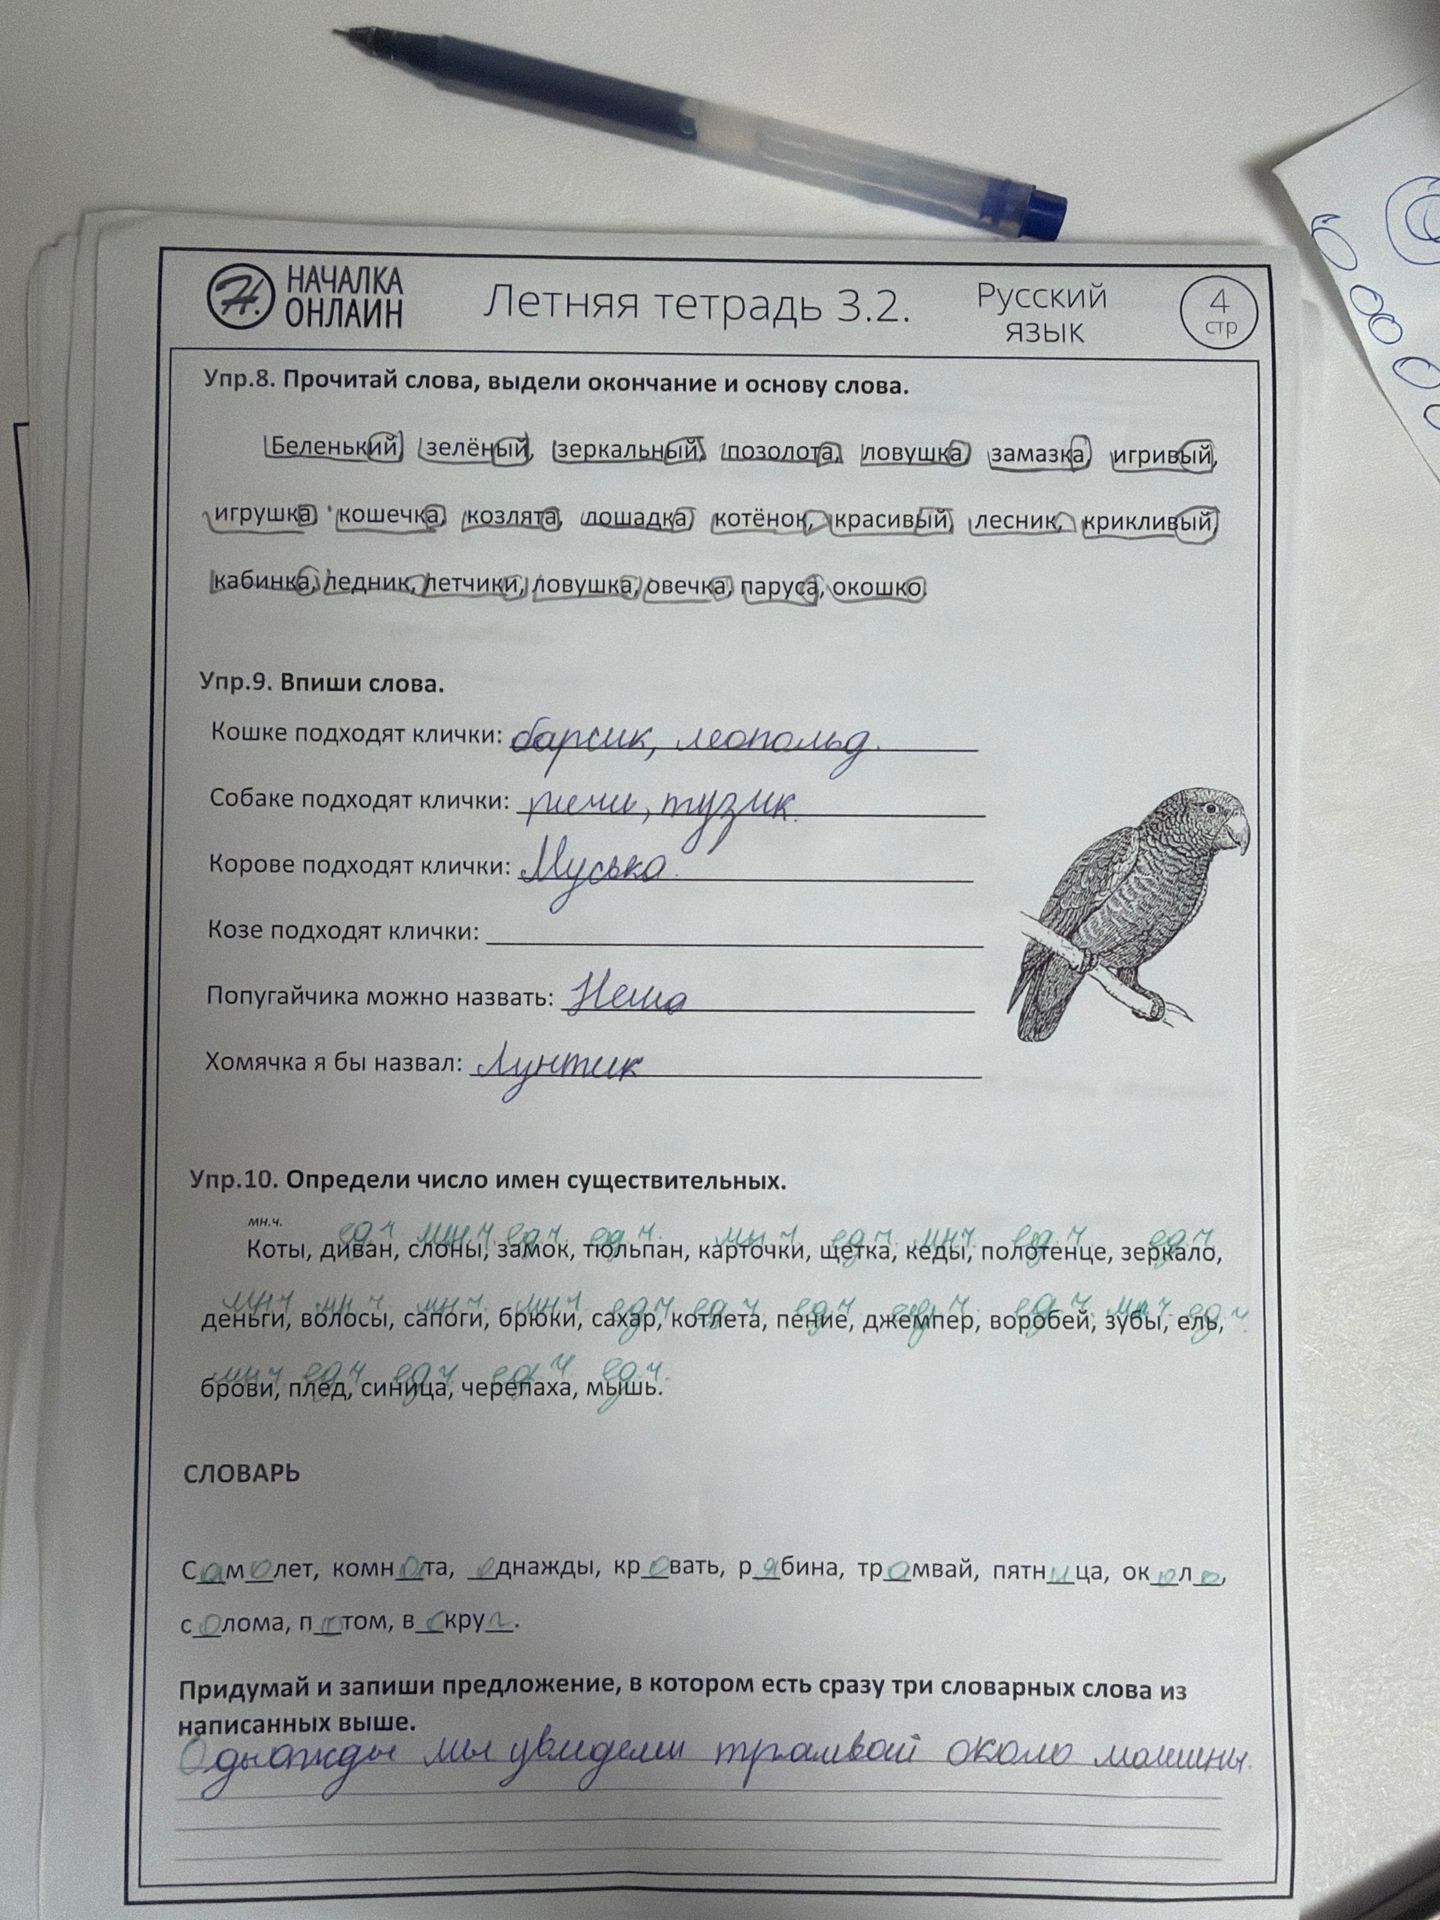 НАЧАЛКА
ОНЛАЙН
Летняя тетрадь 3.2.
Русский
язык
4
стр
Упр.8. Прочитай слова, выдели окончание и основу слова.
Беленький зелёный, зеркальный, позолота, ловушка замазка игривый,
игрушка кошечка, козлята, лошадка котёнок, красивый, лесник, крикливый,
кабинка, ледник, летчики, ловушка, овечка, паруса, окошко.
Упр.9. Впиши слова.
Кошке подходят клички: барсик, леопольд.
Собаке подходят клички: ричи, тузик.
Корове подходят клички: Муська.
Козе подходят клички:
Попугайчика можно назвать: Кеша
Хомячка я бы назвал: Лунтик
Упр.10. Определи число имен существительных.
мн.ч. ед.ч мн.ч ед.ч. ед.ч. мн.ч. ед.ч. мн.ч. ед.ч. ед.ч.
Коты, диван, слоны, замок, тюльпан, карточки, щетка, кеды, полотенце, зеркало,
мн.ч мн.ч. мн.ч. мн.ч. ед.ч ед.ч ед.ч ед.ч. ед.ч. мн.ч. ед.ч.
деньги, волосы, сапоги, брюки, сахар, котлета, пение, джемпер, воробей, зубы, ель,
мн.ч ед.ч ед.ч. ед.ч ед.ч.
брови, плед, синица, черепаха, мышь.
СЛОВАРЬ
Самолет, комната, однажды, кровать, рябина, трамвай, пятница, около,
солома, потом, вокруг.
Придумай и запиши предложение, в котором есть сразу три словарных слова из
написанных выше.
Однажды мы увидели трамвай около машины.